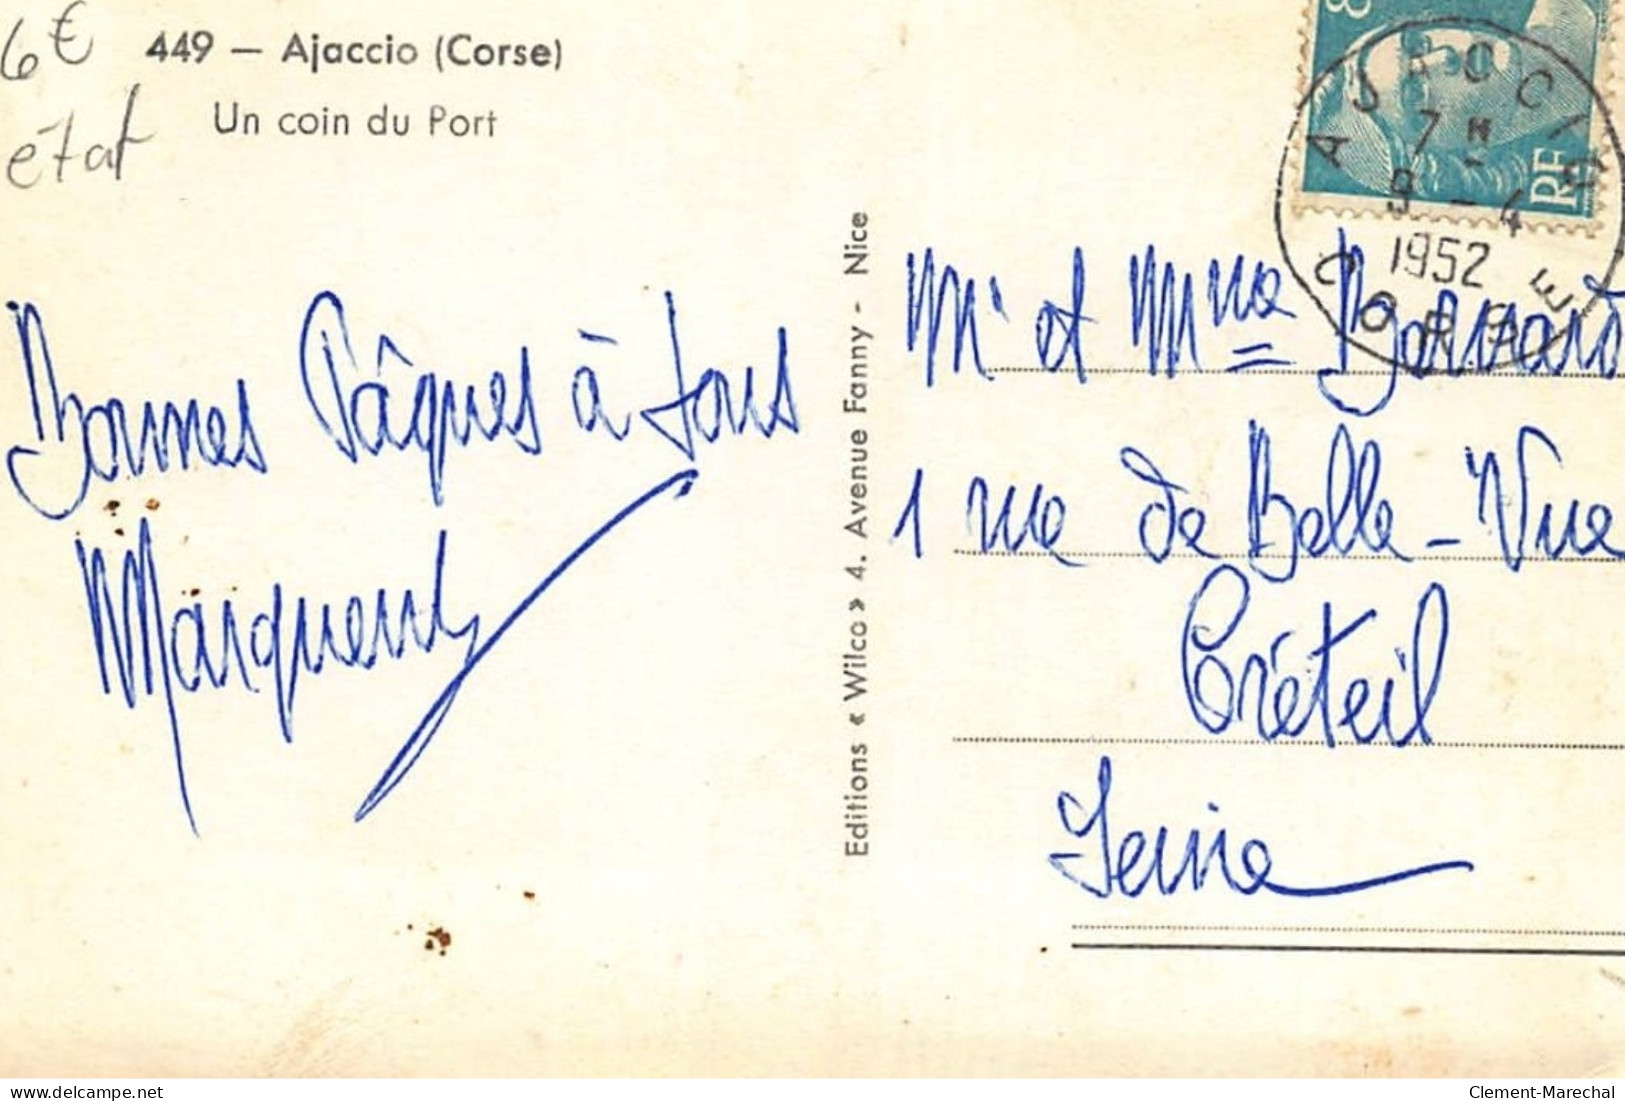 6€
état
449 — Ajaccio (Corse)
Un coin du Port
Bonnes Pâques à tous
Editions « Wilco » 4. Avenue Fanny - Nice
8
RF
AJACCIO
7 H
9 - 4
1952
CORSE
Mr et Mme Bernard
1 rue de Belle-Vue
Créteil
Seine
delcampe.net
Clement-Marechal